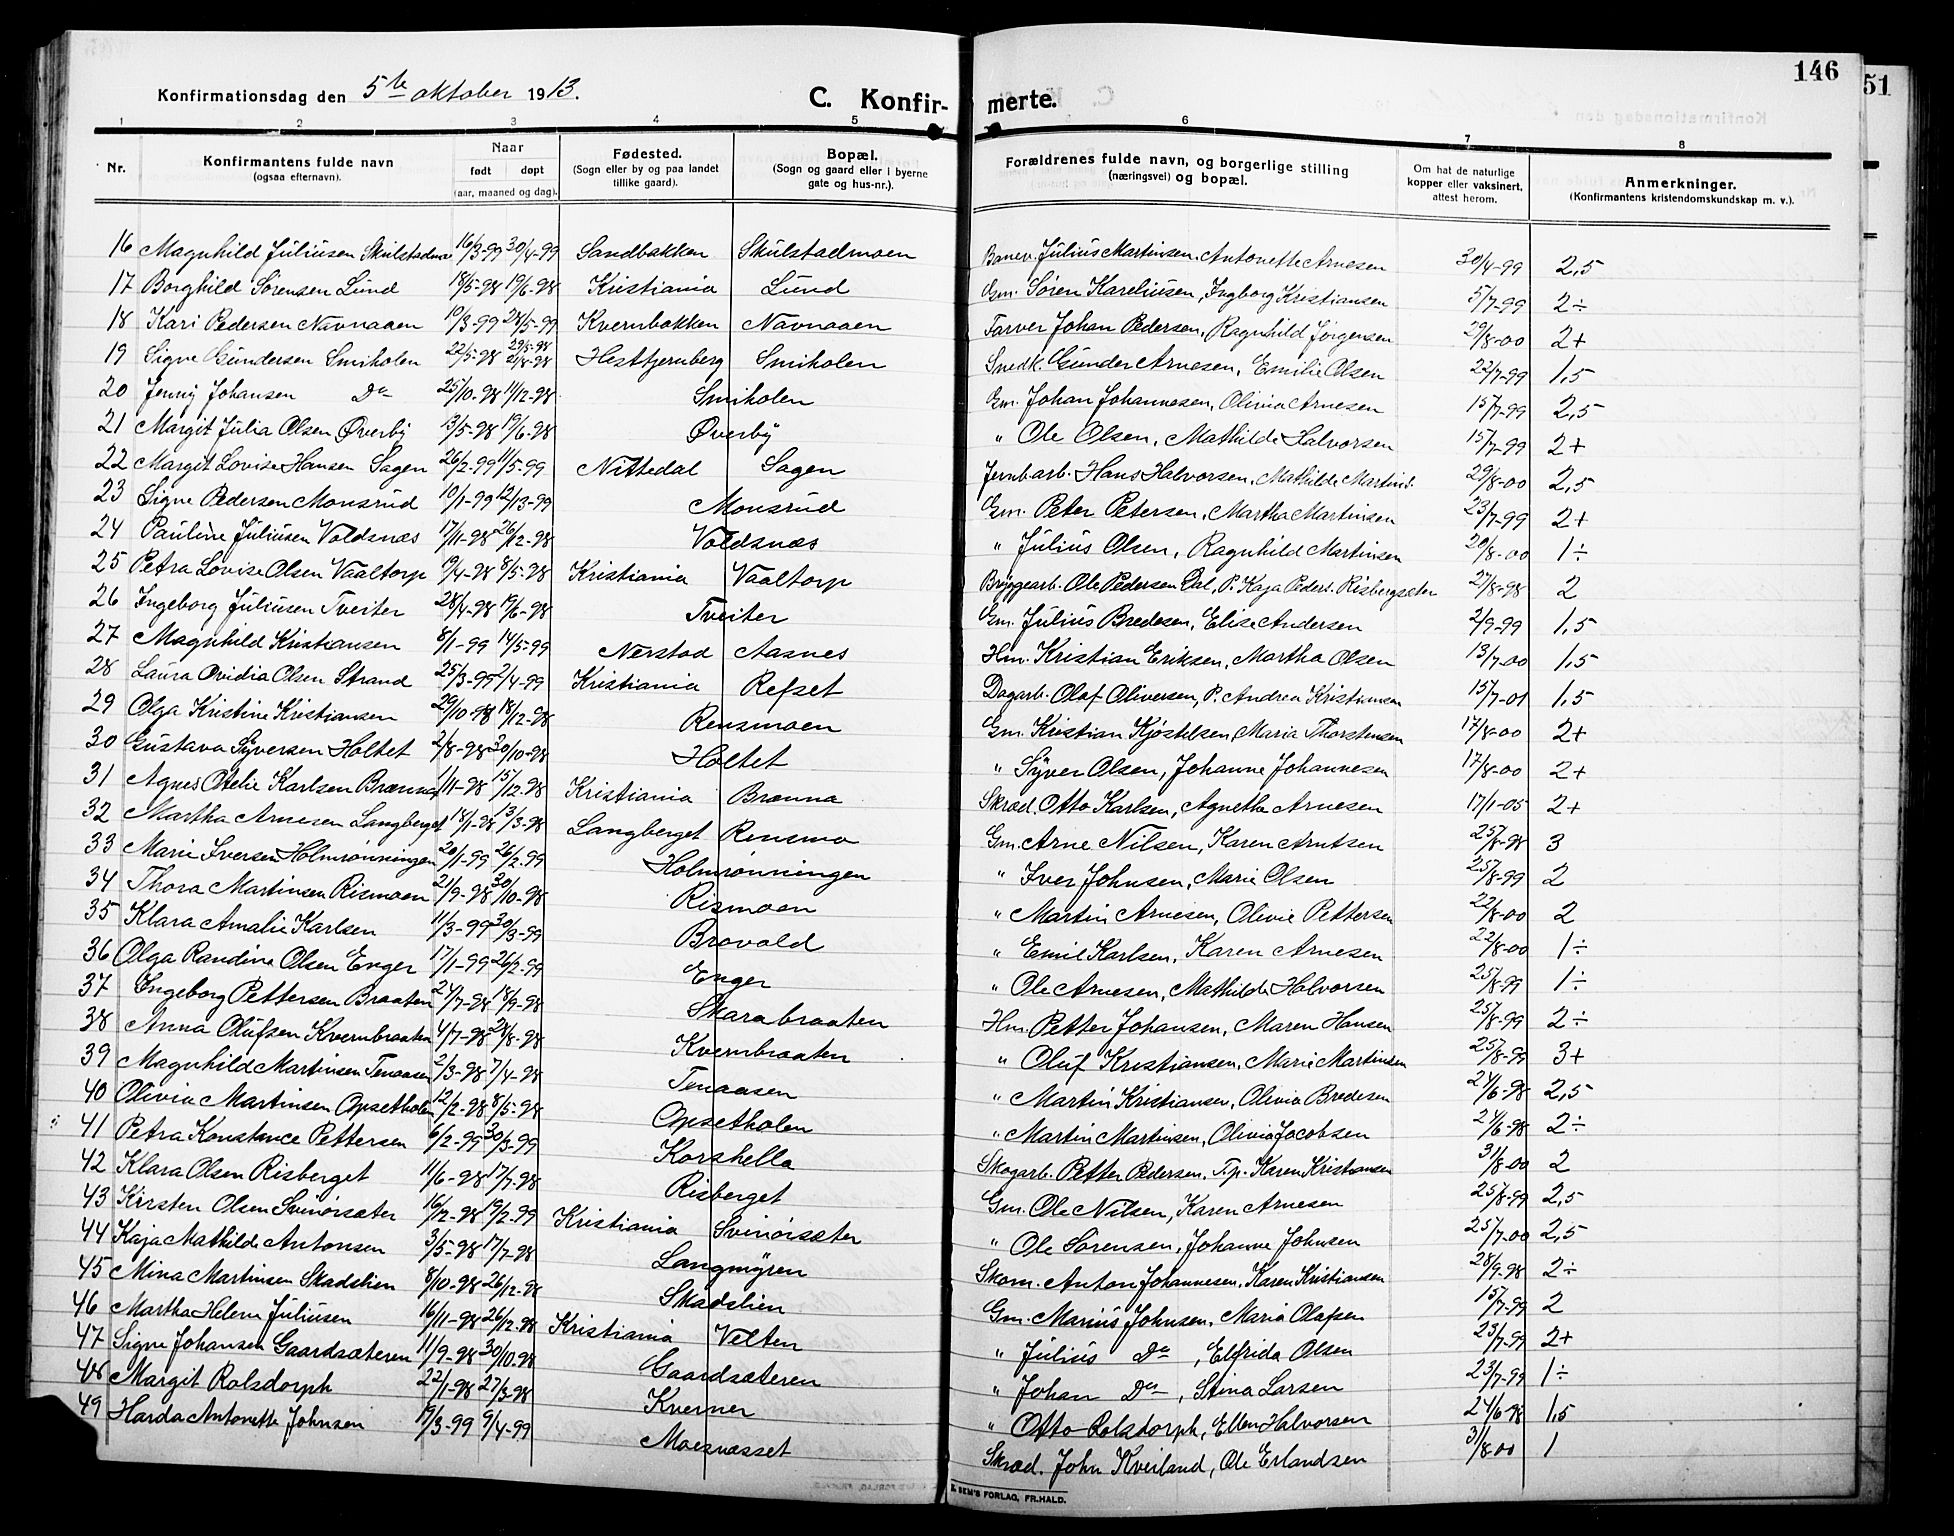 146
51
Konfirmationsdag den 5te oktober 1913.
C. Konfirmerte.
1 2 3 4 5 6 7 8
Nr.
Konfirmantens fulde navn
(ogsaa efternavn).
Naar
født døpt
(aar, maaned og dag).
Fødested.
(Sogn eller by og paa landet
tillike gaard).
Bopæl.
(Sogn og gaard eller i byerne
gate og hus-nr.).
Forældrenes fulde navn, og borgerlige stilling
(næringsvei) og bopæl.
Om hat de naturlige
kopper eller vaksinert,
attest herom.
Anmerkninger.
(Konfirmantens kristendomskundskap m. v.).
16 Magnhild Juliusen Skulstadmo 16/3-99 30/4-99 Sandbakken Skulstadmoen Banev. Julius Martinsen, Antonette Arnesen 30/4-99 2,5
17 Borghild Sørensen Lund 18/5-98 19/6-98 Kristiania Lund Gm. Søren Kareliusen, Ingborg Kristiansen 5/7-99 2÷
18 Kari Pedersen Navnaaen 10/3-99 28/5-99 Kvernbakken Navnaaen Farver Johan Pedersen, Ragnhild Jørgensen 29/8-00 2+
19 Signe Gundersen Smiholen 22/5-98 29/5-98 21/8-98 Hesttjernberg Smiholen Snedk. Gunder Arnesen, Emilie Olsen 22/7-99 1,5
20 Jenny Johansen Do 25/10-98 11/12-98 Smiholen Gm. Johan Johannesen, Olivia Arnesen 15/7-99 2,5
21 Margit Julia Olsen Øverby 13/5-98 19/6-98 Øverby " Ole Olsen, Mathilde Halvorsen 15/7-99 2+
22 Margit Lovise Hansen Sagen 26/2-99 11/5-99 Nittedal Sagen Jernbarb. Hans Halvorsen, Mathilde Martins. 29/8-00 2,5
23 Signe Pedersen Monsrud 10/1-99 12/3-99 Monsrud Gm. Peter Petersen, Martha Martinsen 23/7-99 2+
24 Pauline Juliusen Voldsnæs 17/11-98 26/12-98 Voldsnæs " Julius Olsen, Ragnhild Martinsen 20/8-00 1÷
25 Petra Lovise Olsen Vaaltorp 9/4-98 8/5-98 Kristiania Vaaltorp Bryggearb. Ole Pedersen Dal, P. Kaja Peders. Risbergsæter 27/8-98 2
26 Ingeborg Juliusen Tveiter 28/4-98 19/6-98 Tveiter Gm. Julius Bredesen, Elise Andersen 2/9-99 1,5
27 Magnhild Kristiansen 8/1-99 14/5-99 Nerstad Aasnes Hm. Kristian Eriksen, Martha Olsen 13/7-00 1,5
28 Laura Ovidia Olsen Strand 25/3-99 2/4-99 Kristiania Refset Dagarb. Olaf Oliversen, P. Andrea Kristiansen 15/7-01 1,5
29 Olga Kristine Kristiansen 29/10-98 18/12-98 Rensmoen Gm. Kristian Kjøstelsen, Maria Thorstensen 17/8-00 2+
30 Gustava Syversen Holtet 2/8-98 30/10-98 Holtet " Syver Olsen, Johanne Johannesen 17/8-00 2+
31 Agnes Otelie Karlsen Brænna 1/11-98 15/12-98 Kristiania Brænna Skræd. Otto Karlsen, Agnethe Arnesen 17/1-05 2+
32 Martha Arnesen Langberget 18/1-98 13/3-98 Langberget Rensmo Gm. Arne Nilsen, Karen Arntsen 25/8-98 3
33 Marie Iversen Holmrønningen 20/1-99 26/2-99 Holmrønningen " Iver Johnsen, Marie Olsen 25/8-99 2
34 Thora Martinsen Rismoen 21/9-98 30/10-98 Rismoen " Martin Arnesen, Olivie Pettersen 22/8-00 2
35 Klara Amalie Karlsen 11/3-99 30/3-99 Brovold " Emil Karlsen, Karen Arnesen 22/8-00 1÷
36 Olga Randine Olsen Enger 17/1-99 26/2-99 Enger " Ole Arnesen, Mathilde Halvorsen 25/8-99 1÷
37 Ingeborg Pettersen Braaten 24/7-98 18/9-98 Skarabraaten Hm. Petter Johansen, Maren Hansen 25/8-99 2÷
38 Anna Olufsen Kvernbraaten 4/7-98 28/8-98 Kvernbraaten " Oluf Kristiansen, Marie Martinsen 25/8-98 3+
39 Magnhild Martinsen Tenaasen 2/3-98 7/4-98 Tenaasen " Martin Kristiansen, Olivia Bredesen 24/6-98 2,5
40 Olivia Martinsen Opsetholen 12/2-98 8/5-98 Opsetholen " Martin Martinsen, Olivia Jacobsen 24/6-98 2÷
41 Petra Konstance Pettersen 6/2-99 30/3-99 Korshella Skogarb. Petter Pedersen, T.p. Karen Kristiansen 31/8-00 2
42 Klara Olsen Risberget 11/6-98 17/7-98 Risberget Gm. Ole Nilsen, Karen Arnesen 25/8-99 2,5
43 Kirsten Olsen Svinøisæter 16/12-98 19/2-99 Kristiania Svinøisæter " Ole Sørensen, Johanne Johnsen 25/7-00 2,5
44 Kaja Mathilde Antonsen 3/5-98 17/7-98 Langmyren Skom. Anton Johannesen, Karen Kristiansen 28/9-98 2÷
45 Mina Martinsen Skadslien 8/10-98 26/12-98 Skadslien Gm. Marius Johnsen, Maria Olafsen 15/7-99 2
46 Martha Helene Juliusen 16/11-98 26/12-98 Kristiania Velten " Julius Do, Elfrida Olsen 23/7-99 2+
47 Signe Johansen Gaardsæteren 11/9-98 30/10-98 Gaardsæteren " Johan Do, Stina Larsen 23/7-99 1÷
48 Margit Rolsdorph 22/1-98 27/3-98 Kverner " Otto Rolsdorph, Ellen Halvorsen 24/6-98 1,5
49 Harda Antonette Johnsen 19/3-99 9/4-99 Moesvasset Skræd. John Kveiland, Ole Erlandsen 31/8-00 1
E. SEM'S FORLAG, FR.HALD.